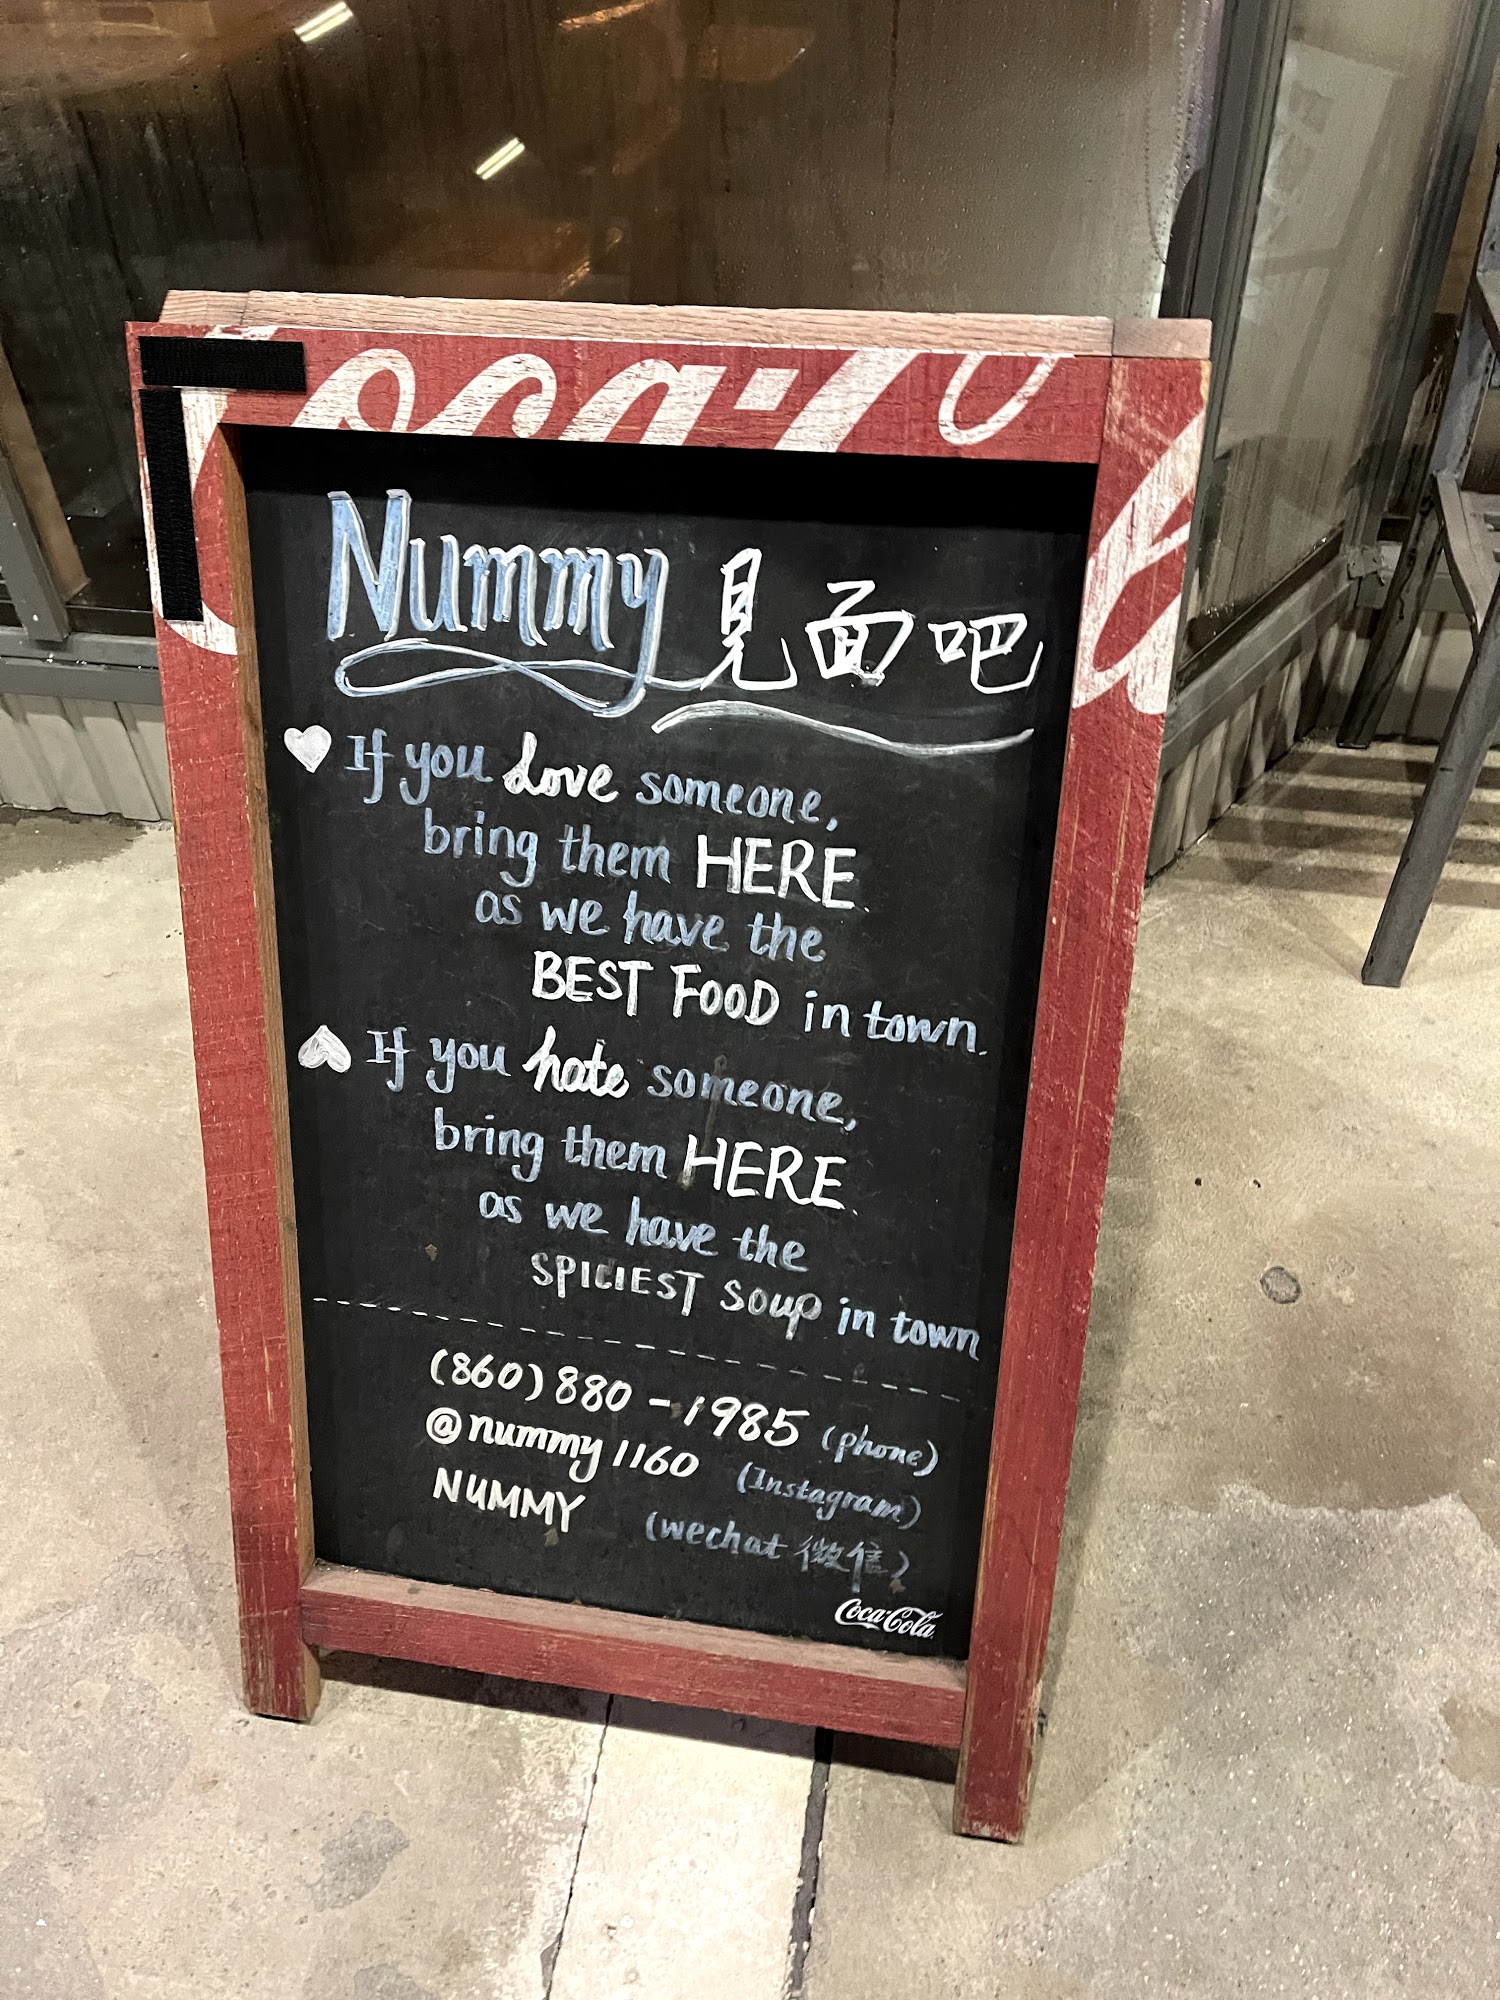 Coca-Cola
Nummy 見面吧
If you Love someone,
bring them HERE.
as we have the
BEST FOOD in town.
If you hate someone,
bring them HERE.
as we have the
SPICIEST SOUP in town
(860) 880-1985 (phone)
@nummy1160 (Instagram)
NUMMY (wechat 微信)
Coca-Cola